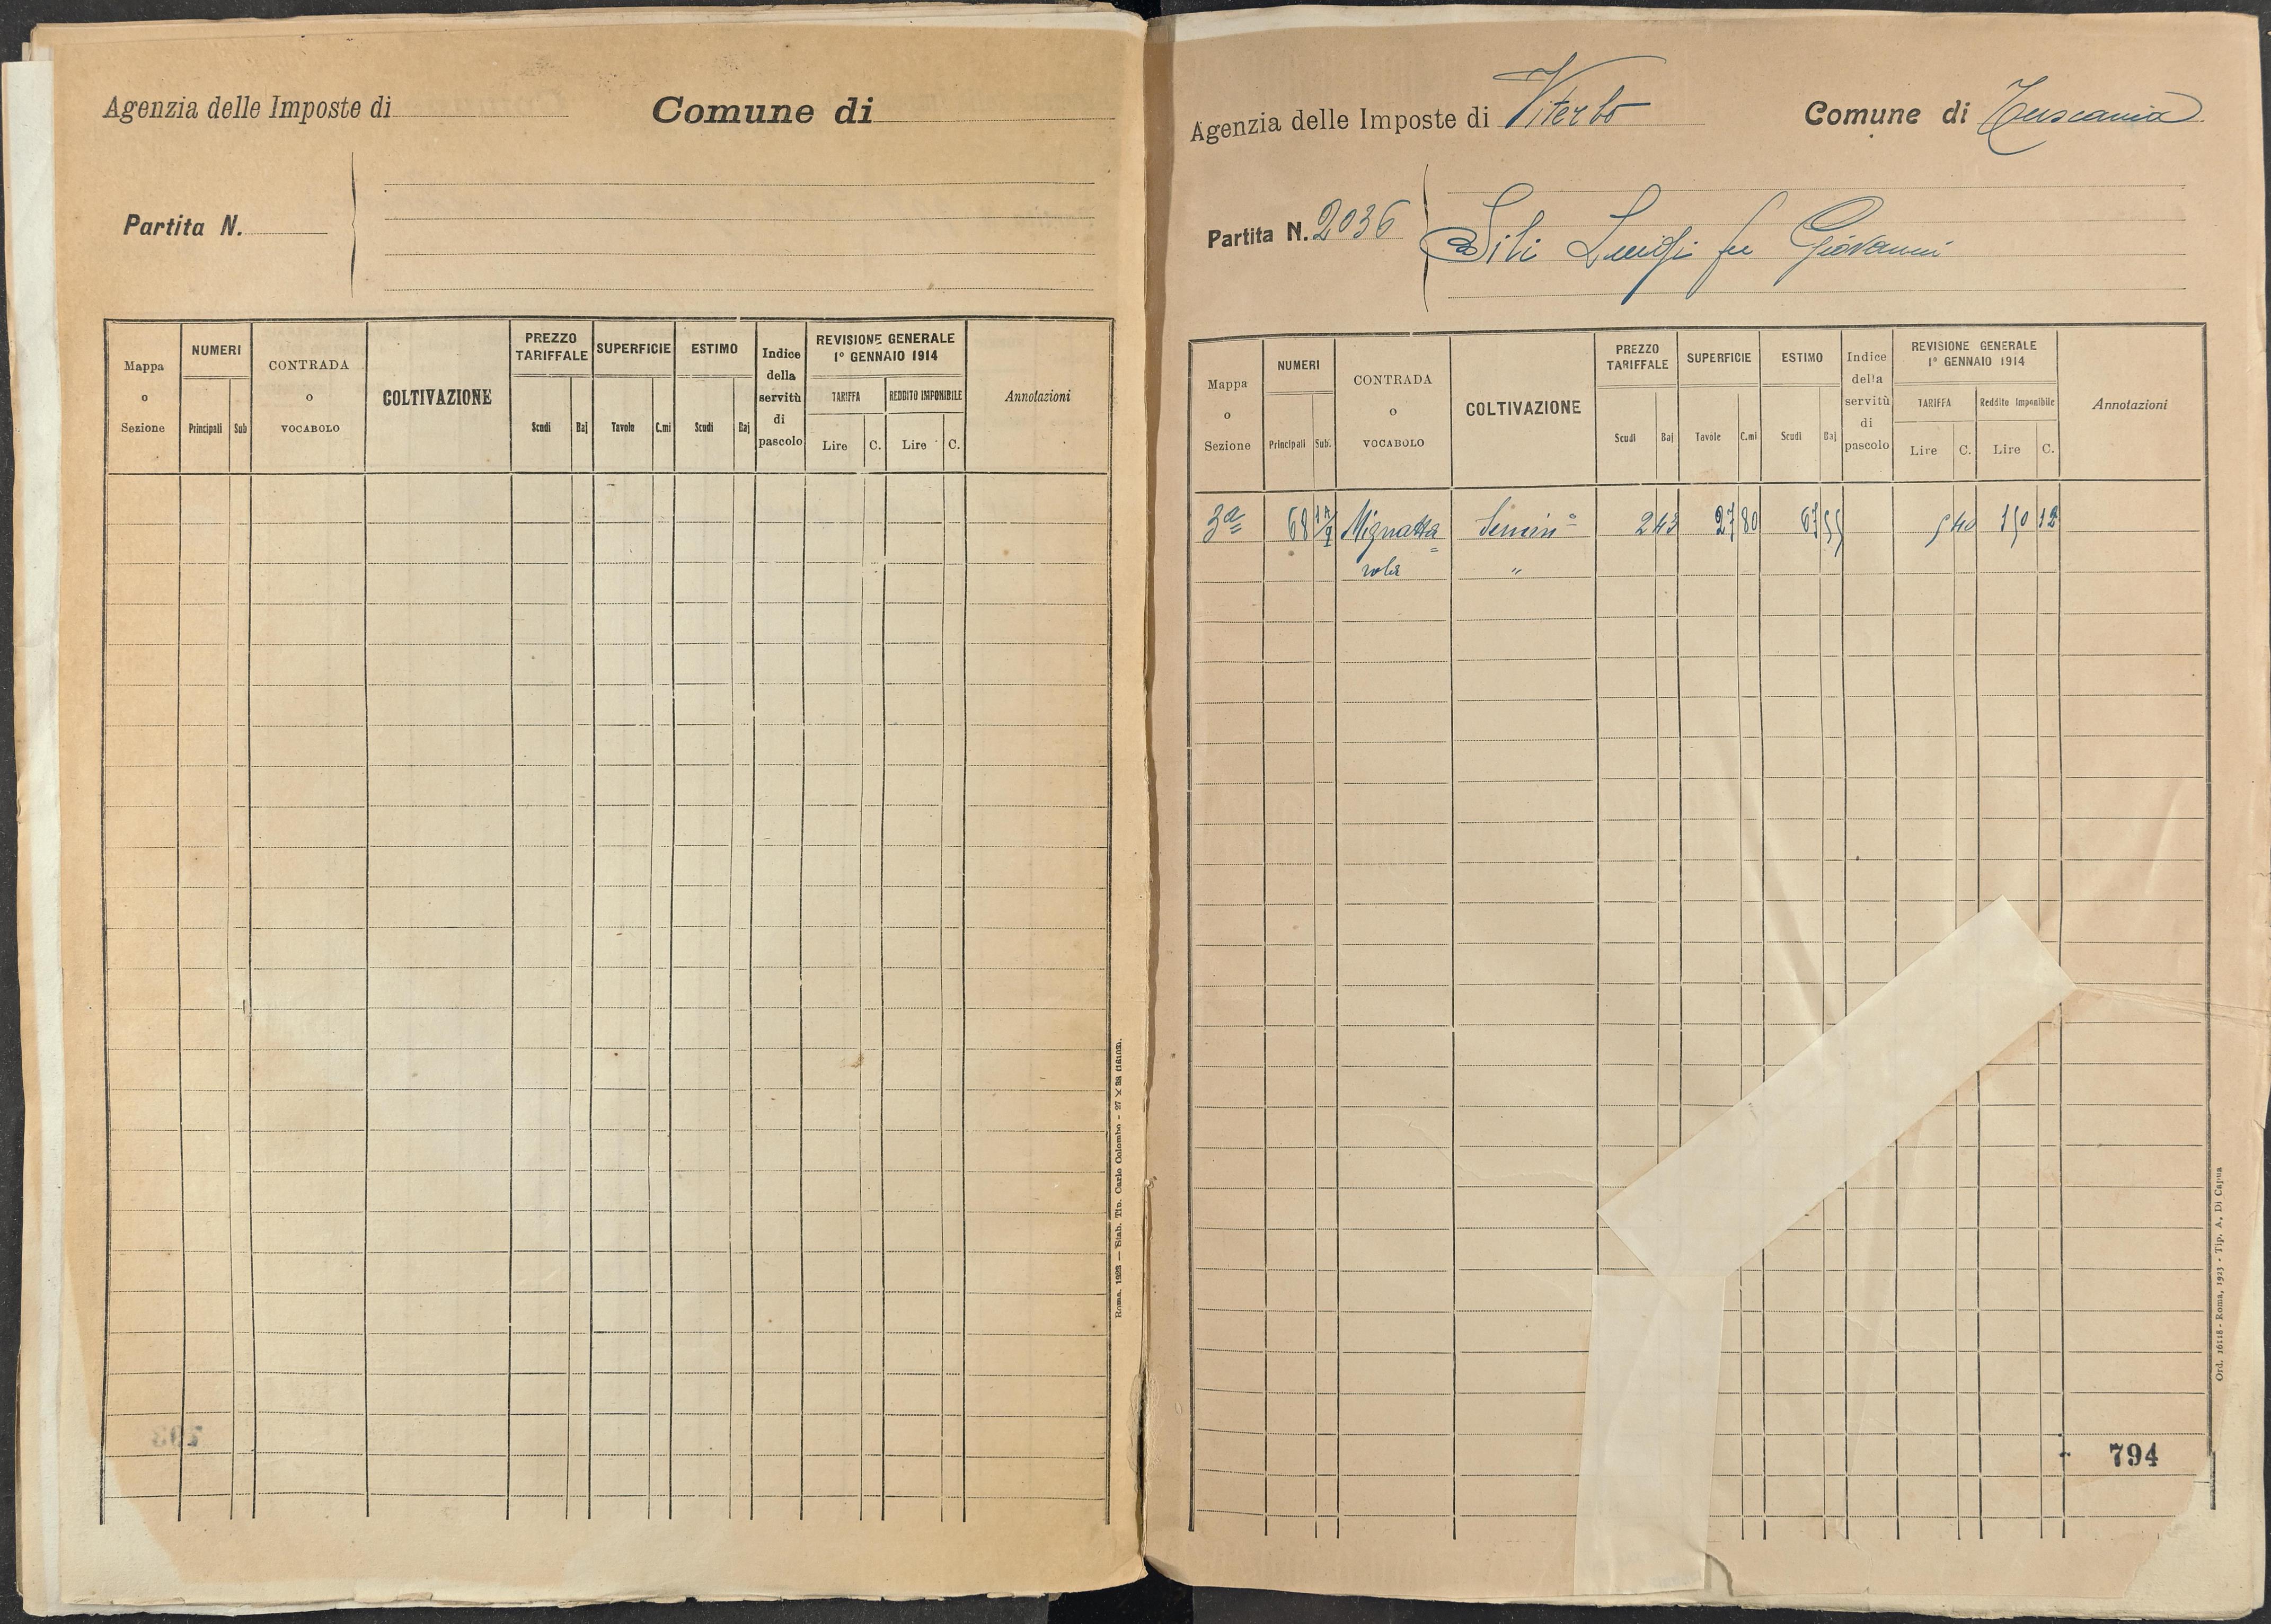 Agenzia delle Imposte di
Comune di
Partita N.
Mappa o Sezione
NUMERI
Principali Sub
CONTRADA o VOCABOLO
COLTIVAZIONE
PREZZO TARIFFALE
Scudi Baj
SUPERFICIE
Tavole C.mi
ESTIMO
Scudi Baj
Indice della servitù di pascolo
REVISIONE GENERALE
1° GENNAIO 1914
TARIFFA
Lire C.
REDDITO IMPONIBILE
Lire C.
Annotazioni
Roma, 1923 — Stab. Tip. Carlo Colombo - 27 X 23
793
Agenzia delle Imposte di Viterbo
Comune di Tuscania
Partita N. 2036
Sili Luigi fu Giovanni
Mappa o Sezione
NUMERI
Principali Sub.
CONTRADA o VOCABOLO
COLTIVAZIONE
PREZZO TARIFFALE
Scudi Baj
SUPERFICIE
Tavole C.mi
ESTIMO
Scudi Baj
Indice della servitù di pascolo
REVISIONE GENERALE
1° GENNAIO 1914
TARIFFA
Lire C.
Reddito Imponibile
Lire C.
Annotazioni
3a 68 Mignatta= Semin° 2 43 27 80 67 55 5 40 150 12
rola "
794
Ord. 16118 - Roma, 1923 - Tip. A. Di Capua